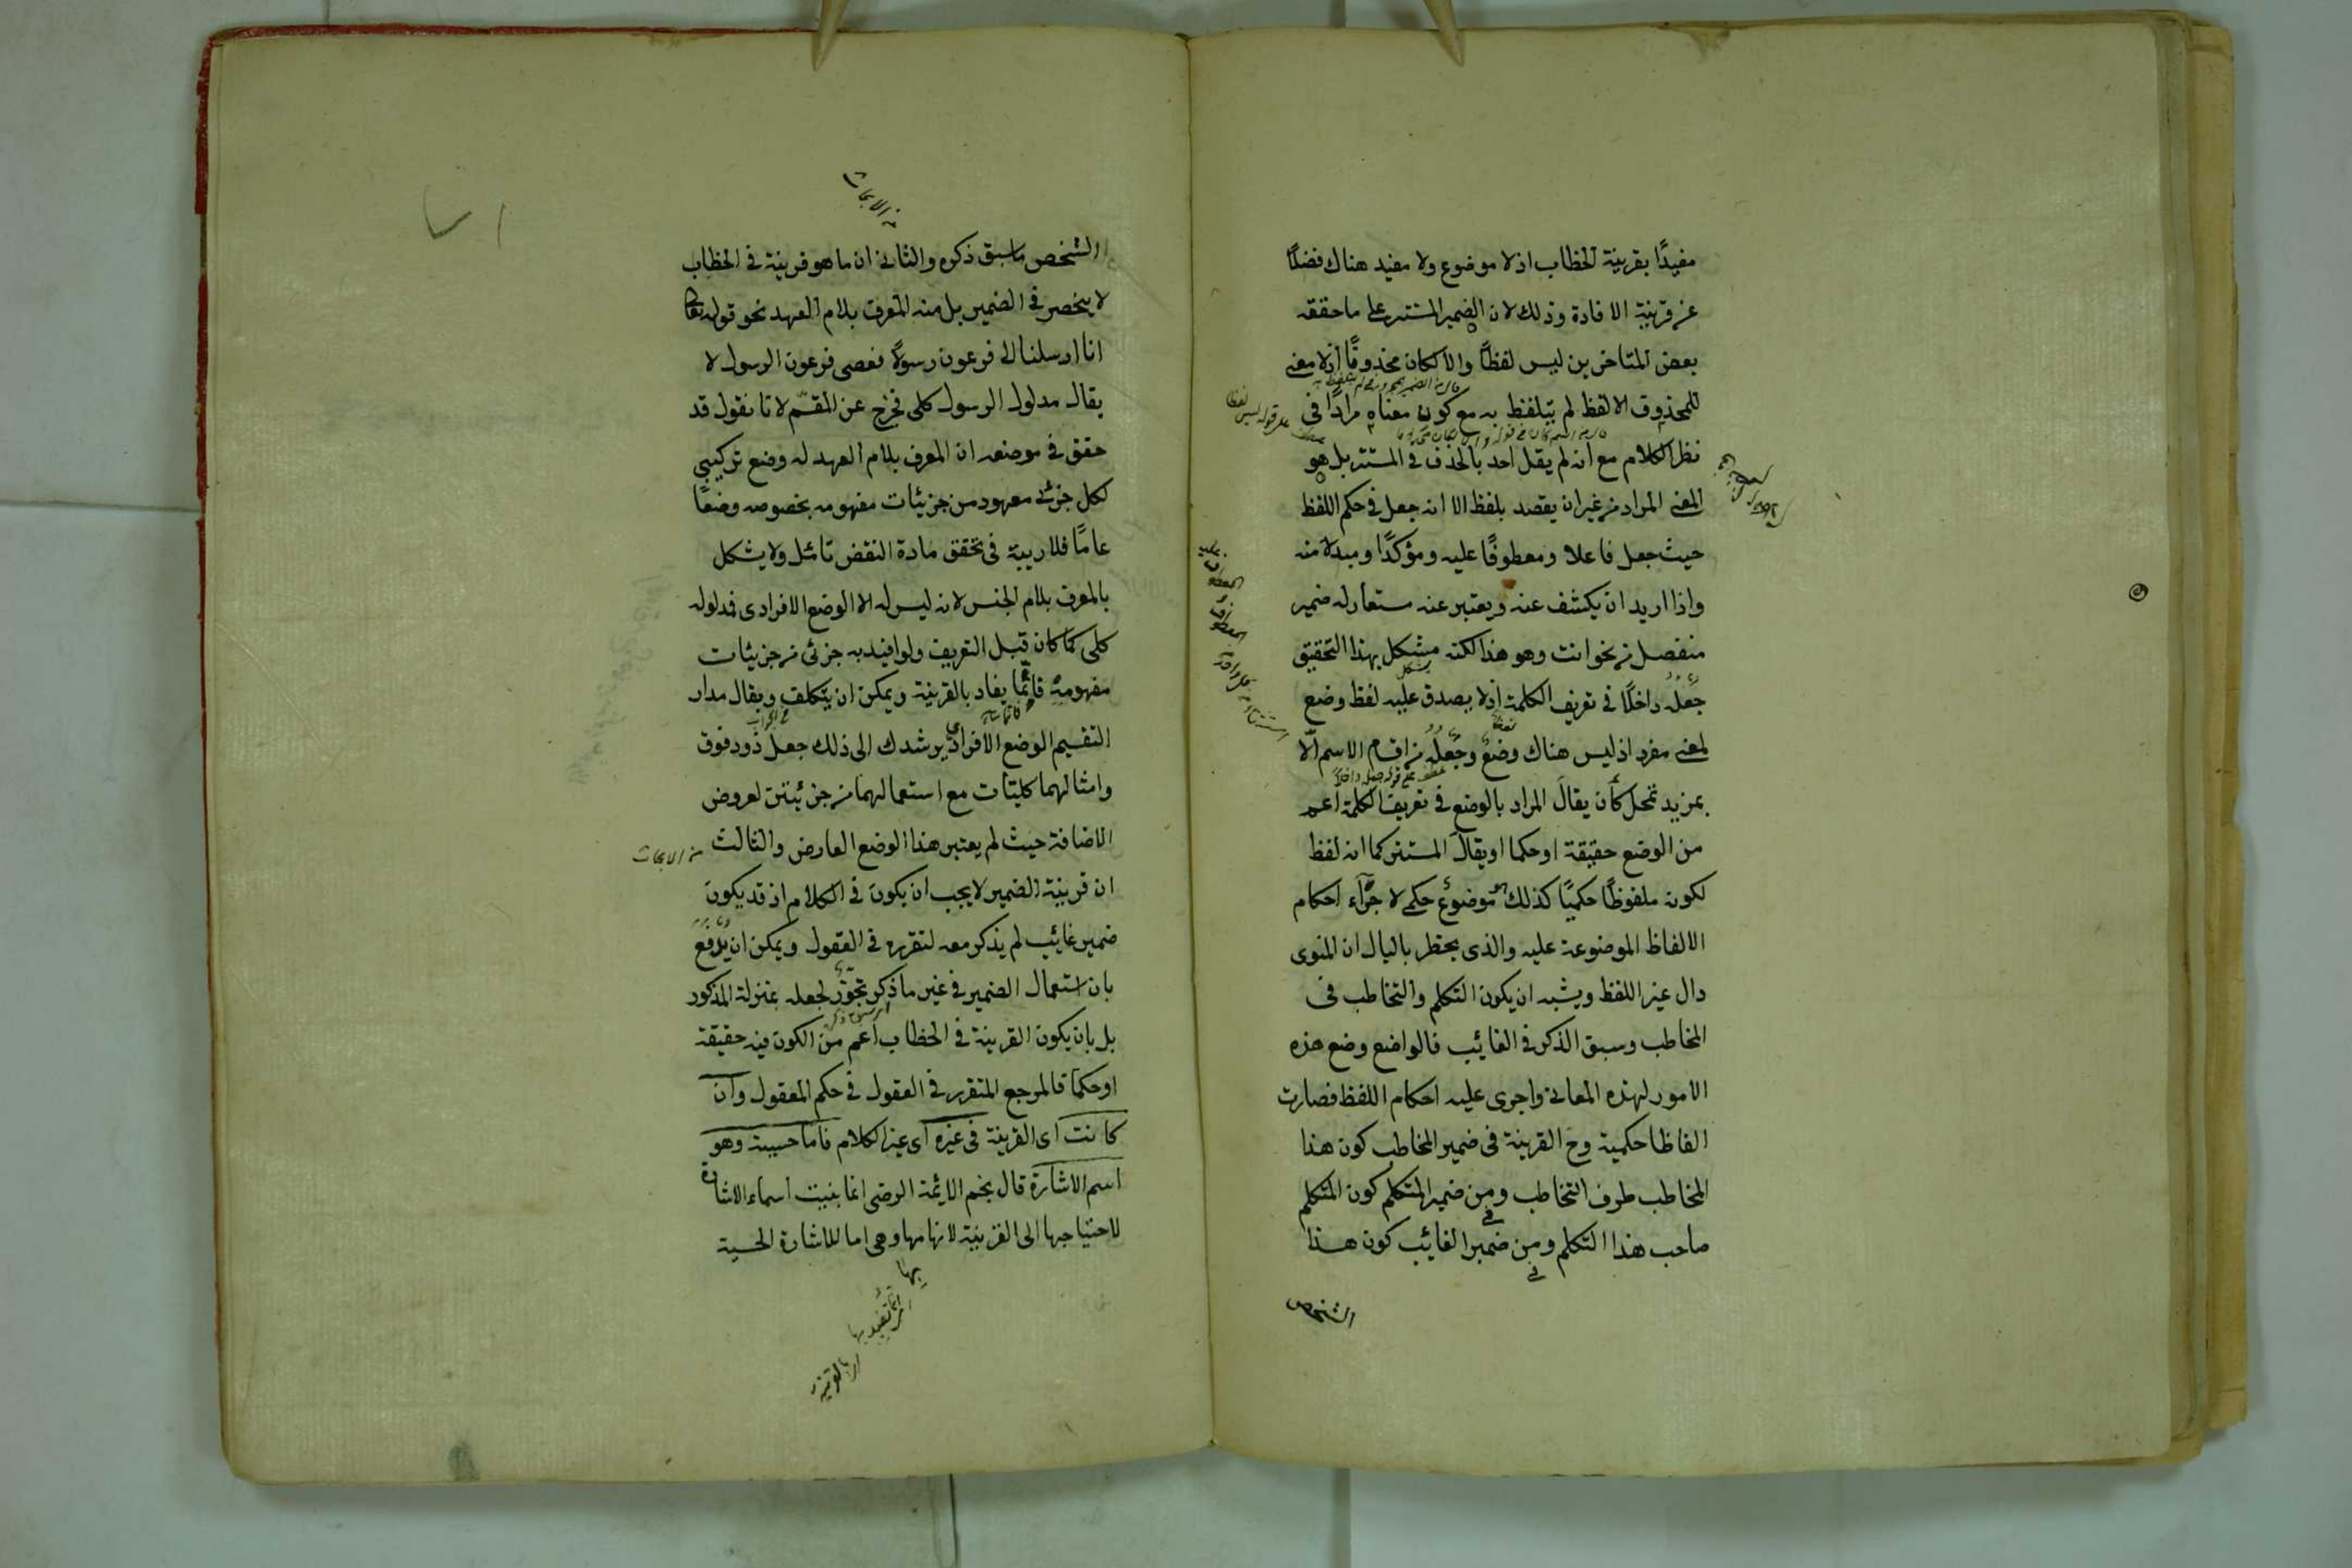 مفيدًا بقرينة الخطاب اذ لا موضوع ولا مفيد هناك فضلًا
عن قرينة الافادة وذلك لان الضمير المستتر على ما حققه
بعض المتاخرين ليس لفظًا والا لكان محذوفًا اذ لا معنى
للمحذوف الا لفظ لم يتلفظ به مع كون معناه مرادًا فى
نظم الكلام مع انه لم يقل احد بالحذف فى المستتر بل هو
المعنى المراد من غير ان يقصد بلفظ الا انه جعل فى حكم اللفظ
حيث جعل فاعلا ومعطوفًا عليه ومؤكدًا ومبدلا منه
واذا اريد ان يكشف عنه ويعتبر عنه يستعار له ضمير
منفصل من نحو انت وهو هذا لكنه مشكل بهذا التحقيق
جعله داخلًا فى تعريف الكلمة اذ لا يصدق عليه لفظ وضع
لمعنى مفرد اذ ليس هناك وضع وجعله من اقسام الاسم الّا
بمزيد تمحل كأن يقال المراد بالوضع فى تعريف الكلمة اعم
من الوضع حقيقة او حكما او يقال المستتر كما انه لفظ
لكونه ملفوظًا حكميًا كذلك هو موضوع حكمى لاجرآء احكام
الالفاظ الموضوعة عليه والذى يخطر بالبال ان المنوى
دال غير اللفظ ويشبه ان يكون التكلم والتخاطب فى
المخاطب وسبق الذكر فى الغائب فالواضع وضع هذه
الامور لهذه المعانى واجرى عليه احكام اللفظ فصارت
الفاظا حكمية وح القرينة فى ضمير المخاطب كون هذا
المخاطب طرف التخاطب ومن ضمير المتكلم كون المتكلم
صاحب هذا التكلم ومن ضمير الغائب كون هذا
الشخص
من الابحاث
الشخص ما سبق ذكره والثانى ان ما هو قرينة فى الخطاب
لا ينحصر فى الضمير بل منه المعرف بلام العهد نحو قوله تعا
انا ارسلنا الى فرعون رسولًا فعصى فرعون الرسول لا
يقال مدلول الرسول كلى فخرج عن المقسّم لانا نقول قد
حقق فى موضعه ان المعرف بلام العهد له وضع تركيبى
لكل جزئى معهود من جزئيات مفهومه بخصوصه وضعًا
عامًا فلا ريبة فى تحقق مادة النقض تامّل ولا يشكل
بالمعرف بلام الجنس لانه ليس له الا الوضع الافرادى فمدلوله
كلى كما كان قبل التعريف ولو افيد به جزئى من جزئيات
مفهومه فانّما يفاد بالقرينة ويمكن ان يتكلف ويقال مدار
التقسيم الوضع الافرادى يرشدك الى ذلك جعل ذو وفوق
وامثالهما كليّات مع استعمالهما من جزئيتين لعروض
الاضافة حيث لم يعتبر هذا الوضع العارض والثالث
من الابحاث
ان قرينة الضمير لا يجب ان يكون فى الكلام اذ قد يكون
ضمير غائب لم يذكر معه لتقرره فى العقول ويمكن ان يدفع
بان استعمال الضمير فى غير ما ذكر تجوّز لجعله بمنزلة المذكور
بل بان يكون القرينة فى الخطاب اعم من الكون فيه حقيقة
او حكمًا فالمرجع المتقرر فى العقول فى حكم المعقول وان
كانت اى القرينة فى غيره اى غير الكلام فاما حسية وهو
اسم الاشارة قال نجم الائمة الرضى انما بنيت اسماء الاشارة
لاحتياجها الى القرينة لابهامها وهى اما للاشارة الحسية